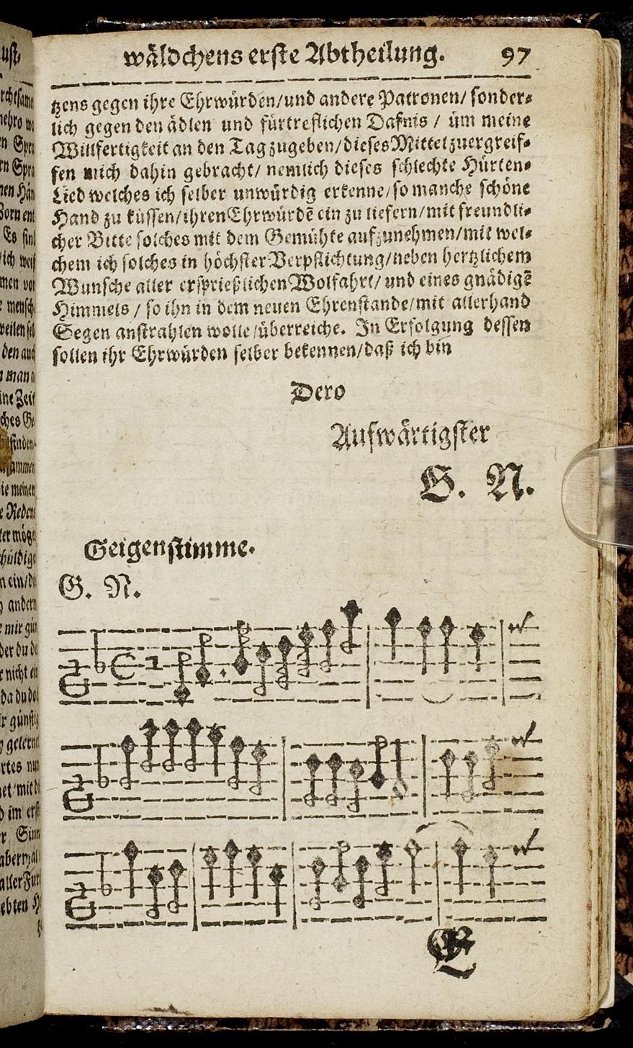 wäldchens erste Abtheilung. 97
tzens gegen ihre Ehrwürden/und andere Patronen/ sonder-
lich gegen den ädlen und fürtreflichen Dafnis / üm meine
Willfertigkeit an den Tag zugeben/dieses Mittel zuergreif-
fen mich dahin gebracht/ nemlich dieses schlechte Hürten-
Lied welches ich selber unwürdig erkenne/so manche schöne
Hand zu küssen/ihren Ehrwürdē ein zu liefern/mit freundli-
cher Bitte solches mit dem Gemühte aufzunehmen/mit wel-
chem ich solches in höchster Verpflichtung/neben hertzlichem
Wunsche aller ersprießlichen Wolfahrt/ und eines gnädigē
Himmels / so ihn in dem neuen Ehrenstande/mit allerhand
Segen anstrahlen wolle/überreiche. In Erfolgung dessen
sollen ihr Ehrwürden selber bekennen/daß ich bin
Dero
Aufwärtigster
G. N.
Geigenstimme.
G. N.
E